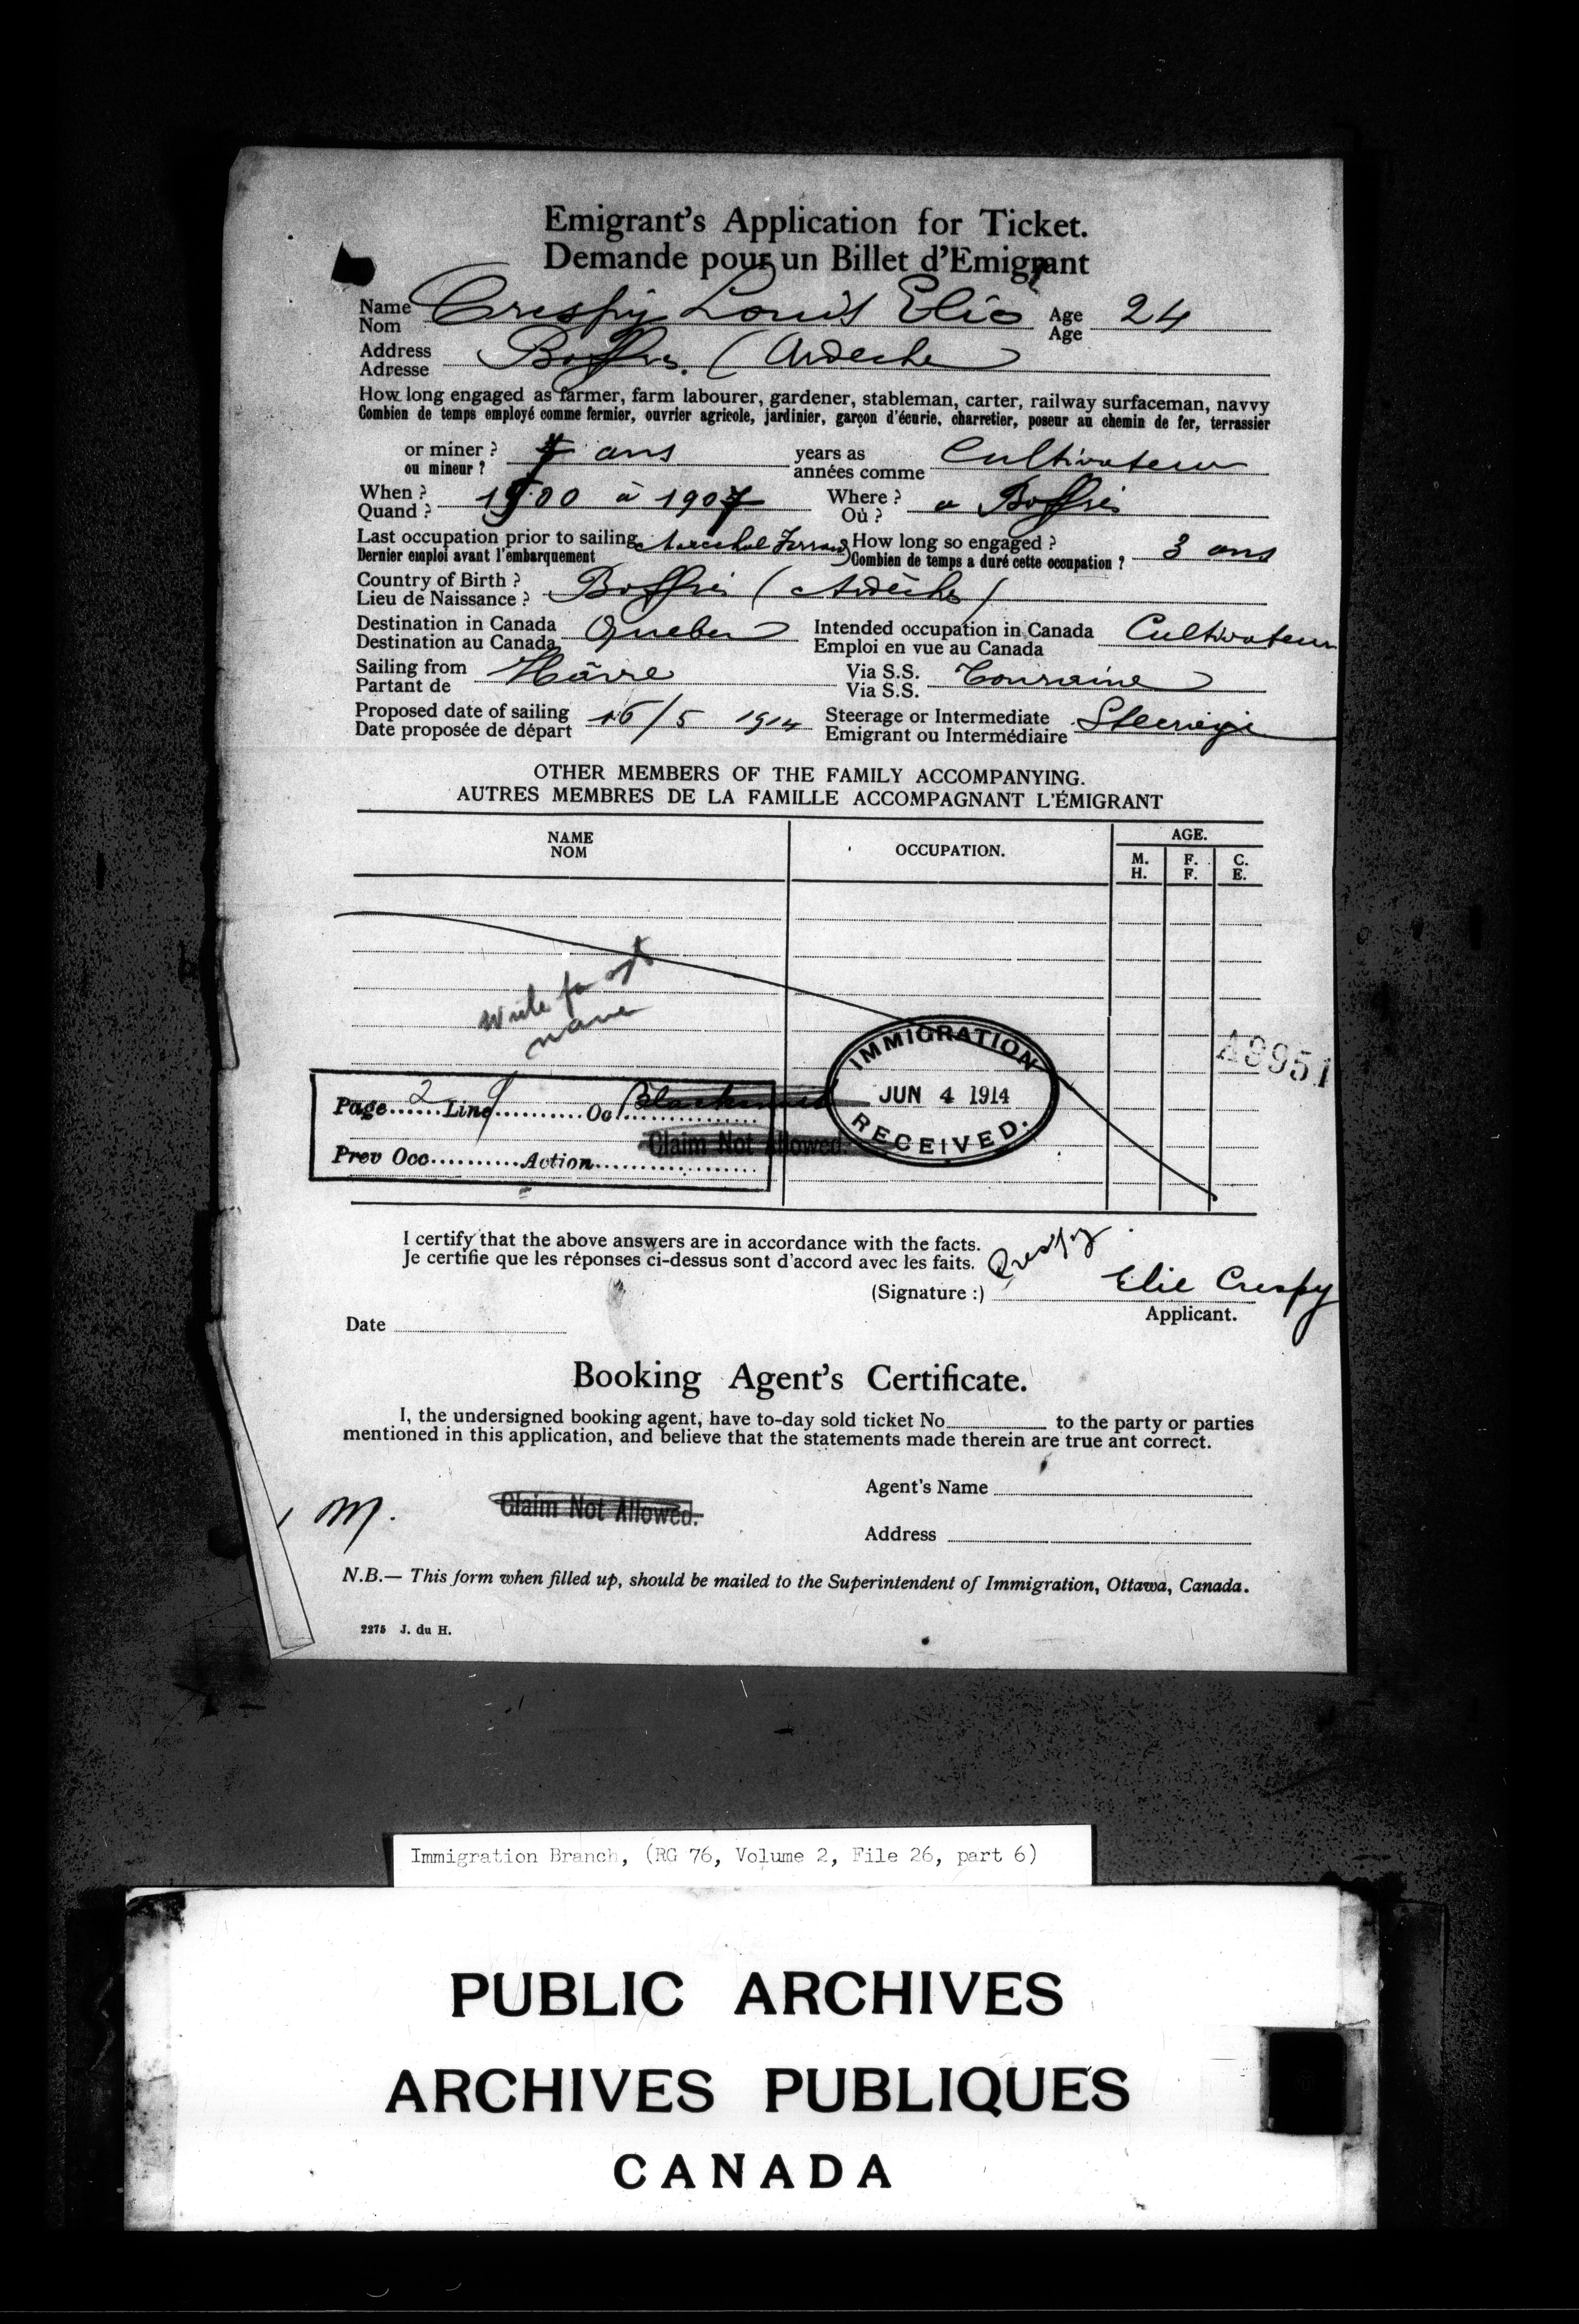 Emigrant's Application for Ticket.
Demande pour un Billet d'Emigrant
Name Crespy Louis Elie Age 24
Nom Age
Address Boffres. (Ardeche
Adresse
How long engaged as farmer, farm labourer, gardener, stableman, carter, railway surfaceman, navvy
Combien de temps employé comme fermier, ouvrier agricole, jardinier, garçon d'écurie, charretier, poseur au chemin de fer, terrassier
or miner ? 7 ans years as Cultivateur
ou mineur ? années comme
When ? 1900 à 1907 Where ? a Boffres
Quand ? Où ?
Last occupation prior to sailing Marechal Ferrand How long so engaged ? 3 ans
Dernier emploi avant l'embarquement Combien de temps a duré cette occupation ?
Country of Birth ? Boffres (Ardèche)
Lieu de Naissance ?
Destination in Canada Quebec Intended occupation in Canada Cultivateur
Destination au Canada Emploi en vue au Canada
Sailing from Hâvre Via S.S. Touraine
Partant de Via S.S.
Proposed date of sailing 16/5 1914 Steerage or Intermediate Steerage
Date proposée de départ Emigrant ou Intermédiaire
OTHER MEMBERS OF THE FAMILY ACCOMPANYING.
AUTRES MEMBRES DE LA FAMILLE ACCOMPAGNANT L'ÉMIGRANT
NAME OCCUPATION. AGE.
NOM
M. F. C.
H. F. E.
Write for agt
name
IMMIGRATION
JUN 4 1914
RECEIVED.
A8951
Page 2 Line 9 Oc Blacksmith
Claim Not Allowed.
Prev Occ Action
I certify that the above answers are in accordance with the facts.
Je certifie que les réponses ci-dessus sont d'accord avec les faits.
Crespy
(Signature :) Elie Crespy
Applicant.
Date
Booking Agent's Certificate.
I, the undersigned booking agent, have to-day sold ticket No to the party or parties
mentioned in this application, and believe that the statements made therein are true ant correct.
Agent's Name
M. Claim Not Allowed.
Address
N.B.— This form when filled up, should be mailed to the Superintendent of Immigration, Ottawa, Canada.
2275 J. du H.
Immigration Branch, (RG 76, Volume 2, File 26, part 6)
PUBLIC ARCHIVES
ARCHIVES PUBLIQUES
CANADA